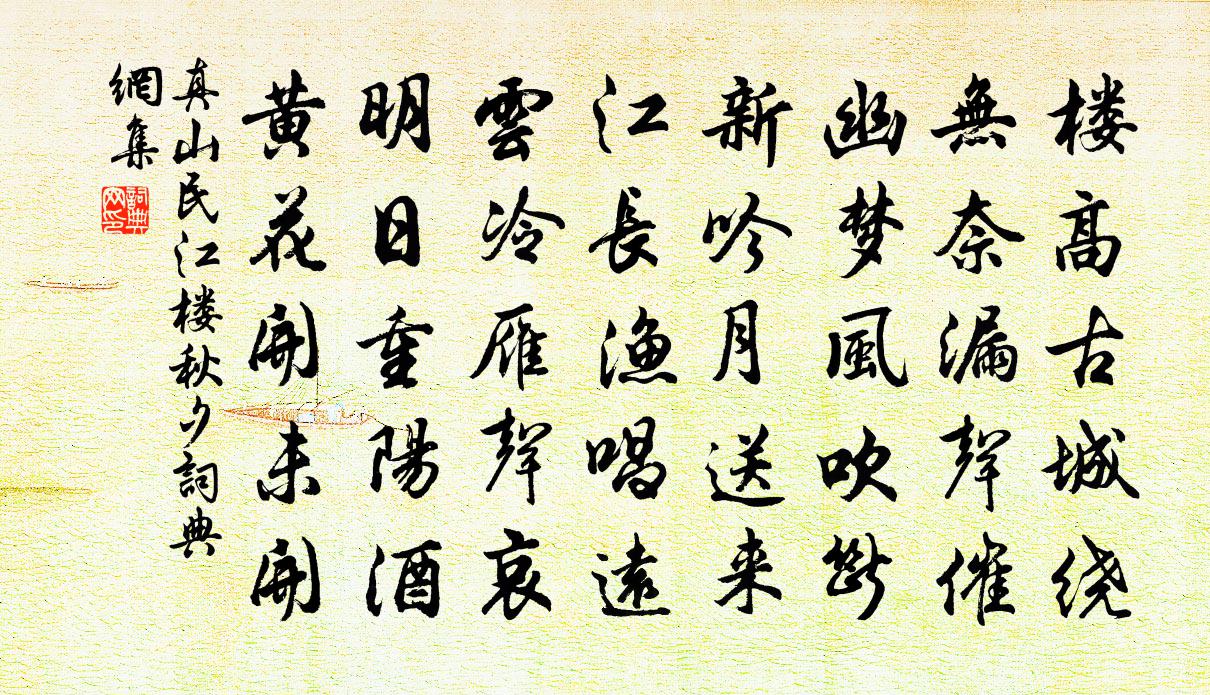 楼高古城绕
無奈漏聲催
幽梦風吹斷
新吟月送来
江長漁唱遠
雲冷雁聲哀
明日重陽酒
黄花開未開
真山民江楼秋夕詞典
網集
詞典
网印